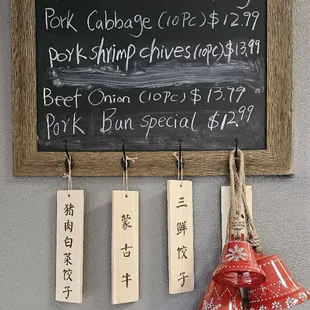 Pork Cabbage (10PC) $12.99
pork shrimp chives (10PC) $13.99
Beef Onion (10PC) $13.99
Pork Bun special $12.99
猪肉白菜饺子
蒙古牛
三鲜饺子